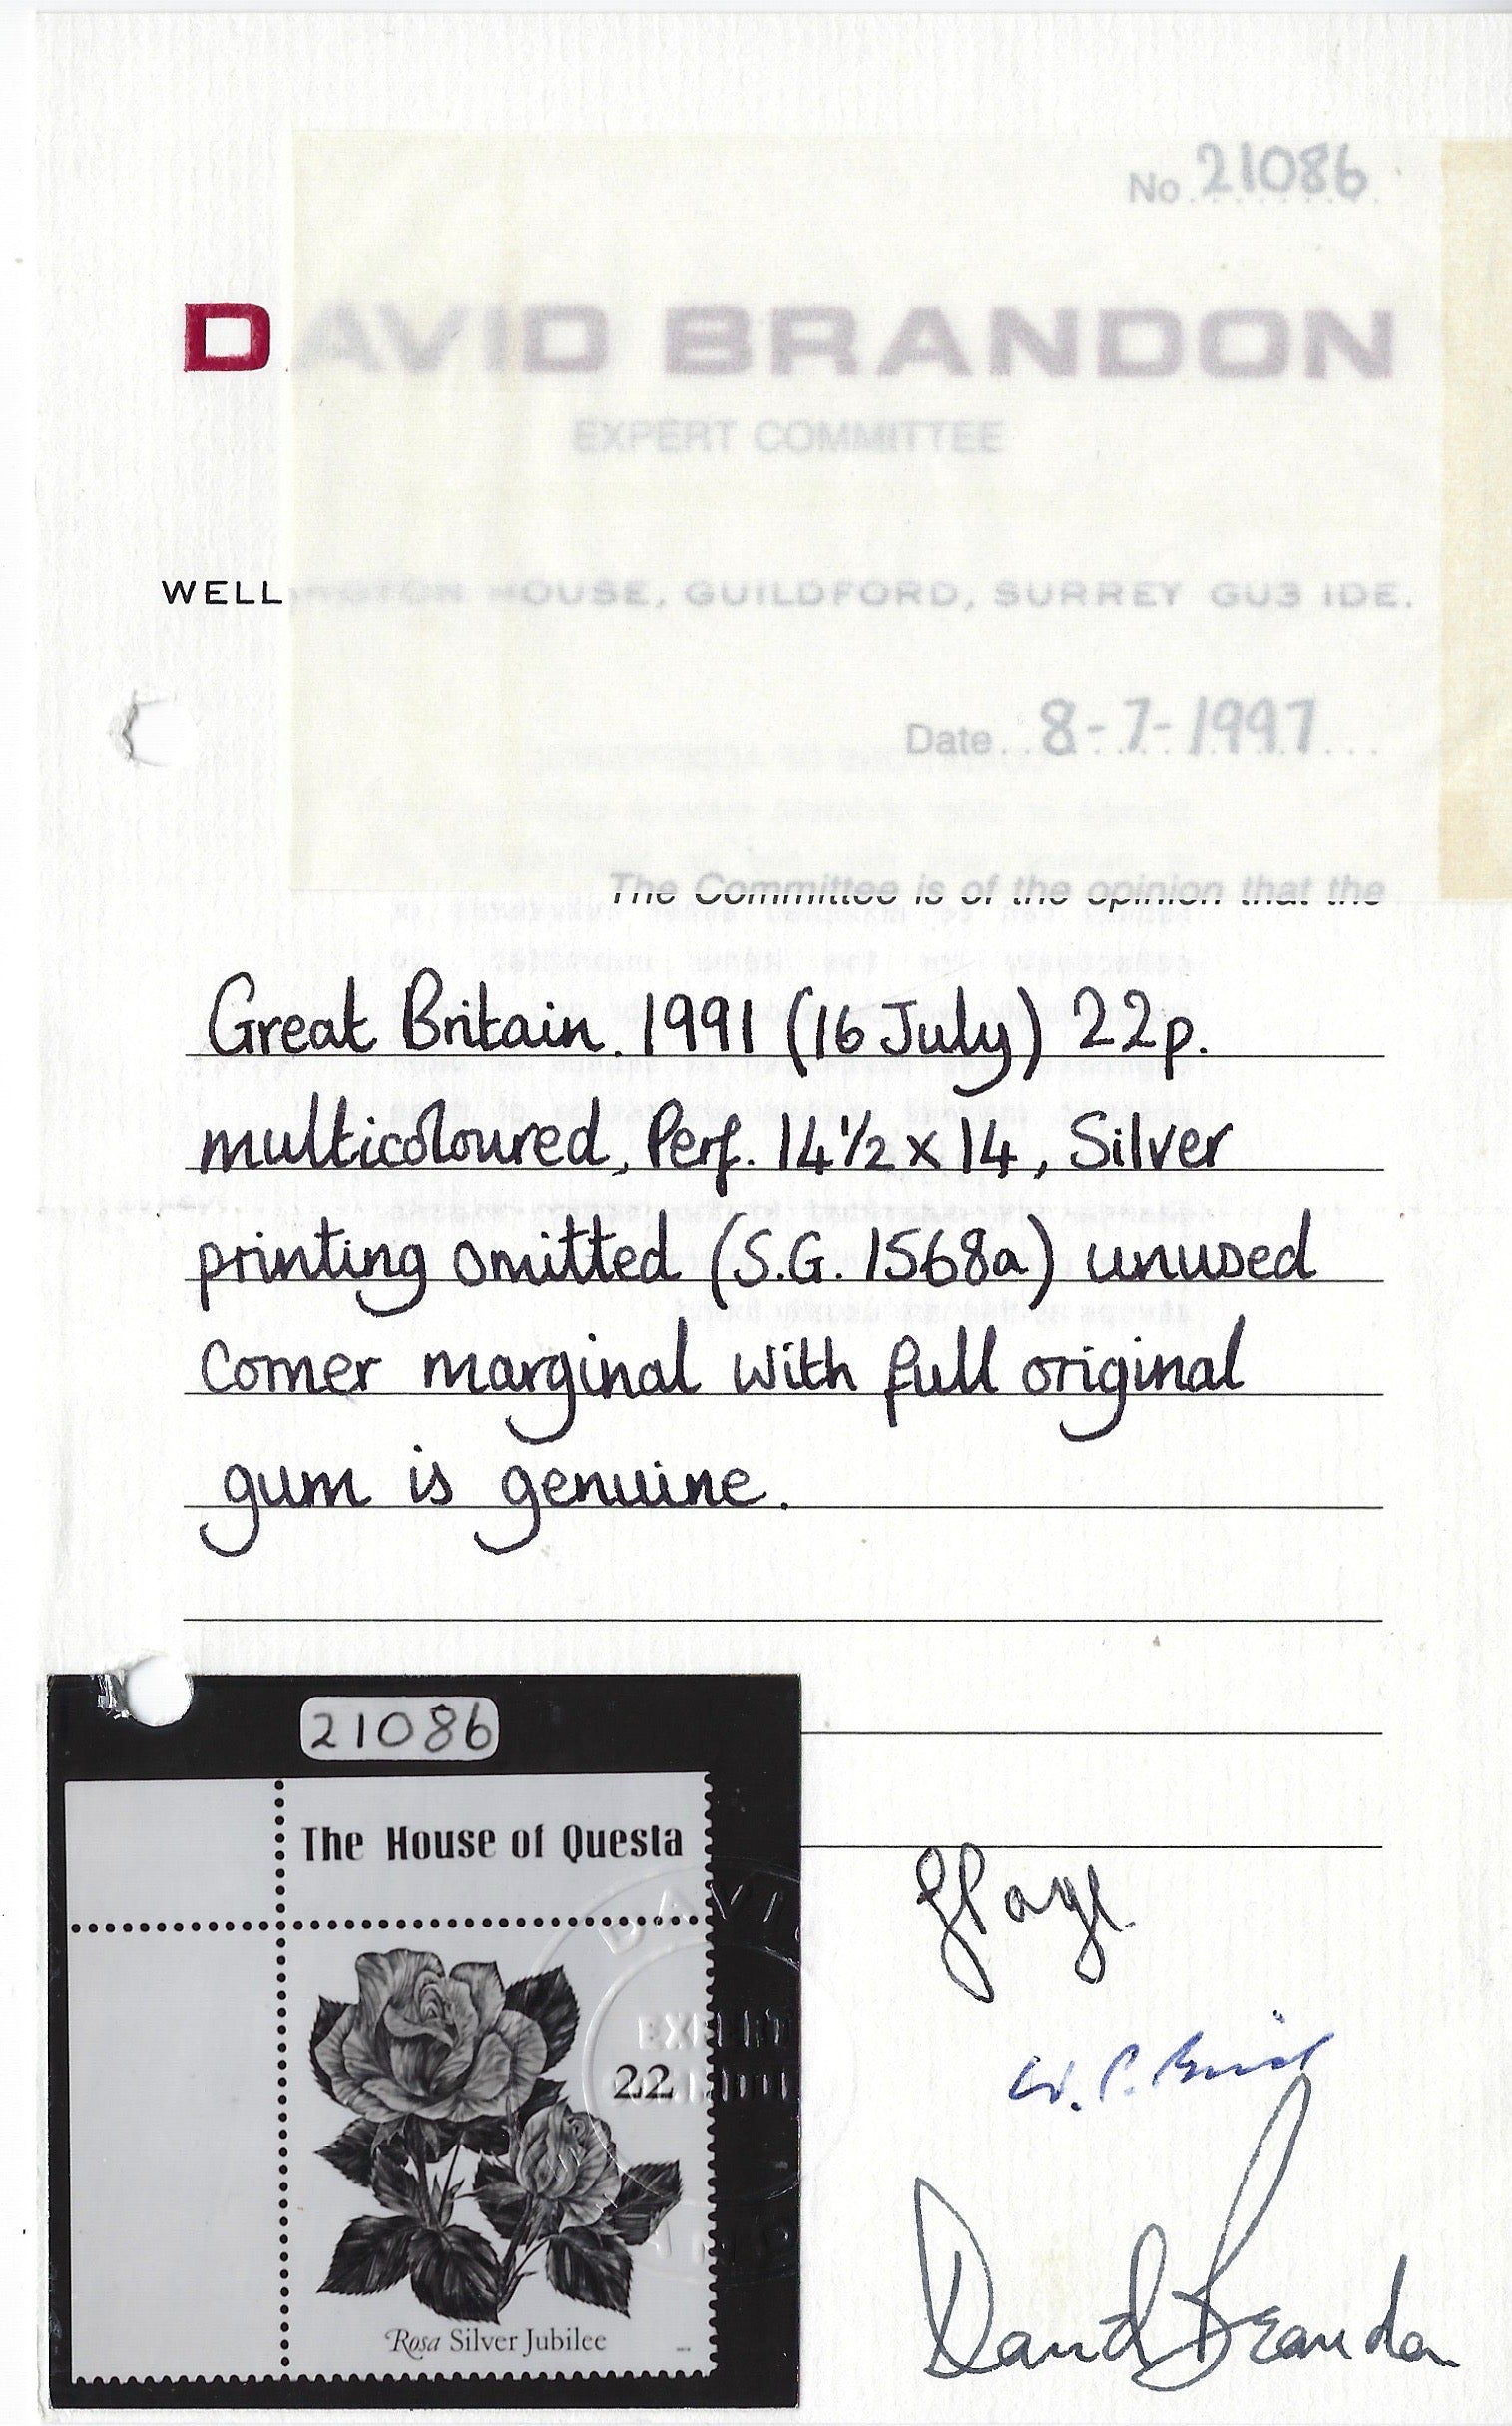 No. 21086
DAVID BRANDON
EXPERT COMMITTEE
WELLINGTON HOUSE, GUILDFORD, SURREY GU3 1DE.
Date 8-7-1997
The Committee is of the opinion that the
Great Britain. 1991 (16 July) 22p.
multicoloured, Perf. 14½ x 14, Silver
printing omitted (S.G. 1568a) unused
corner marginal with full original
gum is genuine.
21086
The House of Questa
DAVI
EXPERT
22
Rosa Silver Jubilee
David Brandon